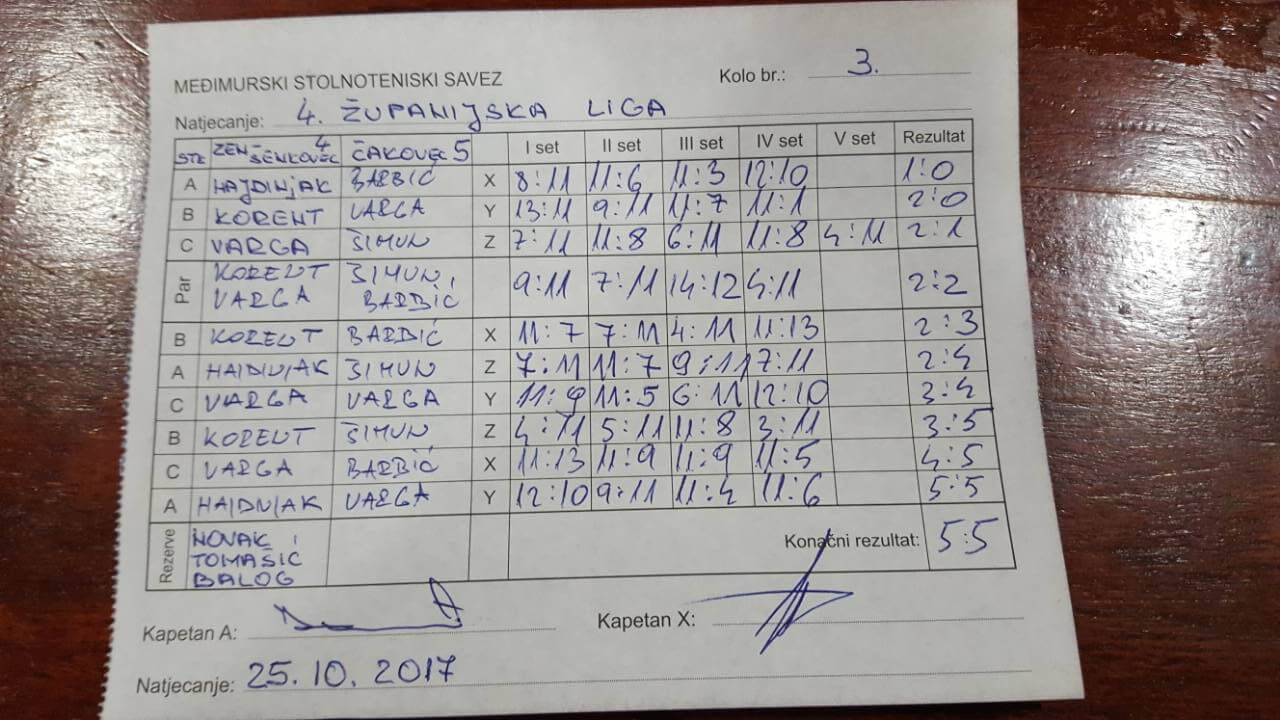 MEĐIMURSKI STOLNOTENISKI SAVEZ Kolo br.: 3.
Natjecanje: 4. ŽUPANIJSKA LIGA
STK ZEN ŠENKOVEC 4 ČAKOVEC 5 I set II set III set IV set V set Rezultat
A HAJDINJAK BARBIĆ X 8:11 11:6 11:3 12:10 1:0
B KORENT VARGA Y 13:11 9:11 11:7 11:1 2:0
C VARGA ŠIMUN Z 7:11 11:8 6:11 11:8 4:11 2:1
Par KORENT VARGA ŠIMUN, BARBIĆ 9:11 7:11 14:12 4:11 2:2
B KORENT BARBIĆ X 11:7 7:11 4:11 11:13 2:3
A HAJDINJAK ŠIMUN Z 7:11 11:7 9:11 7:11 2:4
C VARGA VARGA Y 11:9 11:5 6:11 12:10 3:4
B KORENT ŠIMUN Z 4:11 5:11 11:8 3:11 3:5
C VARGA BARBIĆ X 11:13 11:9 11:9 11:5 4:5
A HAJDINJAK VARGA Y 12:10 9:11 11:4 11:6 5:5
Rezerve NOVAK I TOMAŠIĆ BALOG Konačni rezultat: 5:5
Kapetan A: Kapetan X:
Natjecanje: 25.10.2017